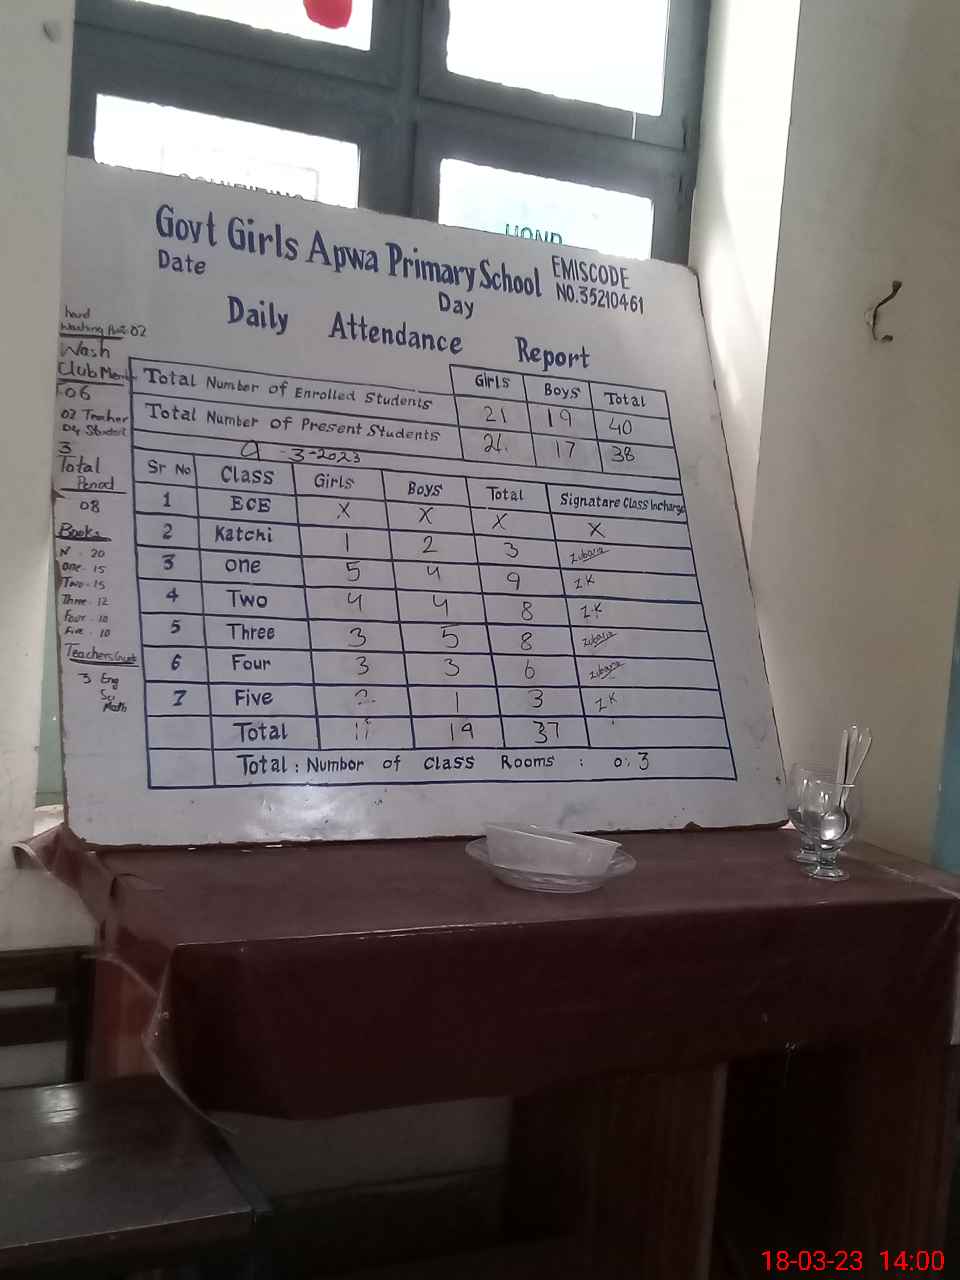 Govt Girls Apwa Primary School
EMISCODE
NO.35210461
Date
Day
Daily Attendance Report
Girls Boys Total
Total Number of Enrolled Students 21 19 40
Total Number of Present Students 21 17 38
9 3-2023
Sr No Class Girls Boys Total Signatare Class Incharge
1 ECE X X X X
2 Katchi 1 2 3 Zubaria
3 one 5 4 9 ZK
4 Two 4 4 8 ZK
5 Three 3 5 8 Zubaria
6 Four 3 3 6 Zubaria
7 Five 2 1 3 ZK
Total 19 37
Total : Number of Class Rooms : 0: 3
hand
Washing 02
Wash
Club Mem
06
02 Teacher
04 Student
3
Total
Period
08
Books
N - 20
one - 15
Two - 15
Three - 12
Four - 10
Five - 10
Teachers
3 Eng
Sci
Math
18-03-23 14:00